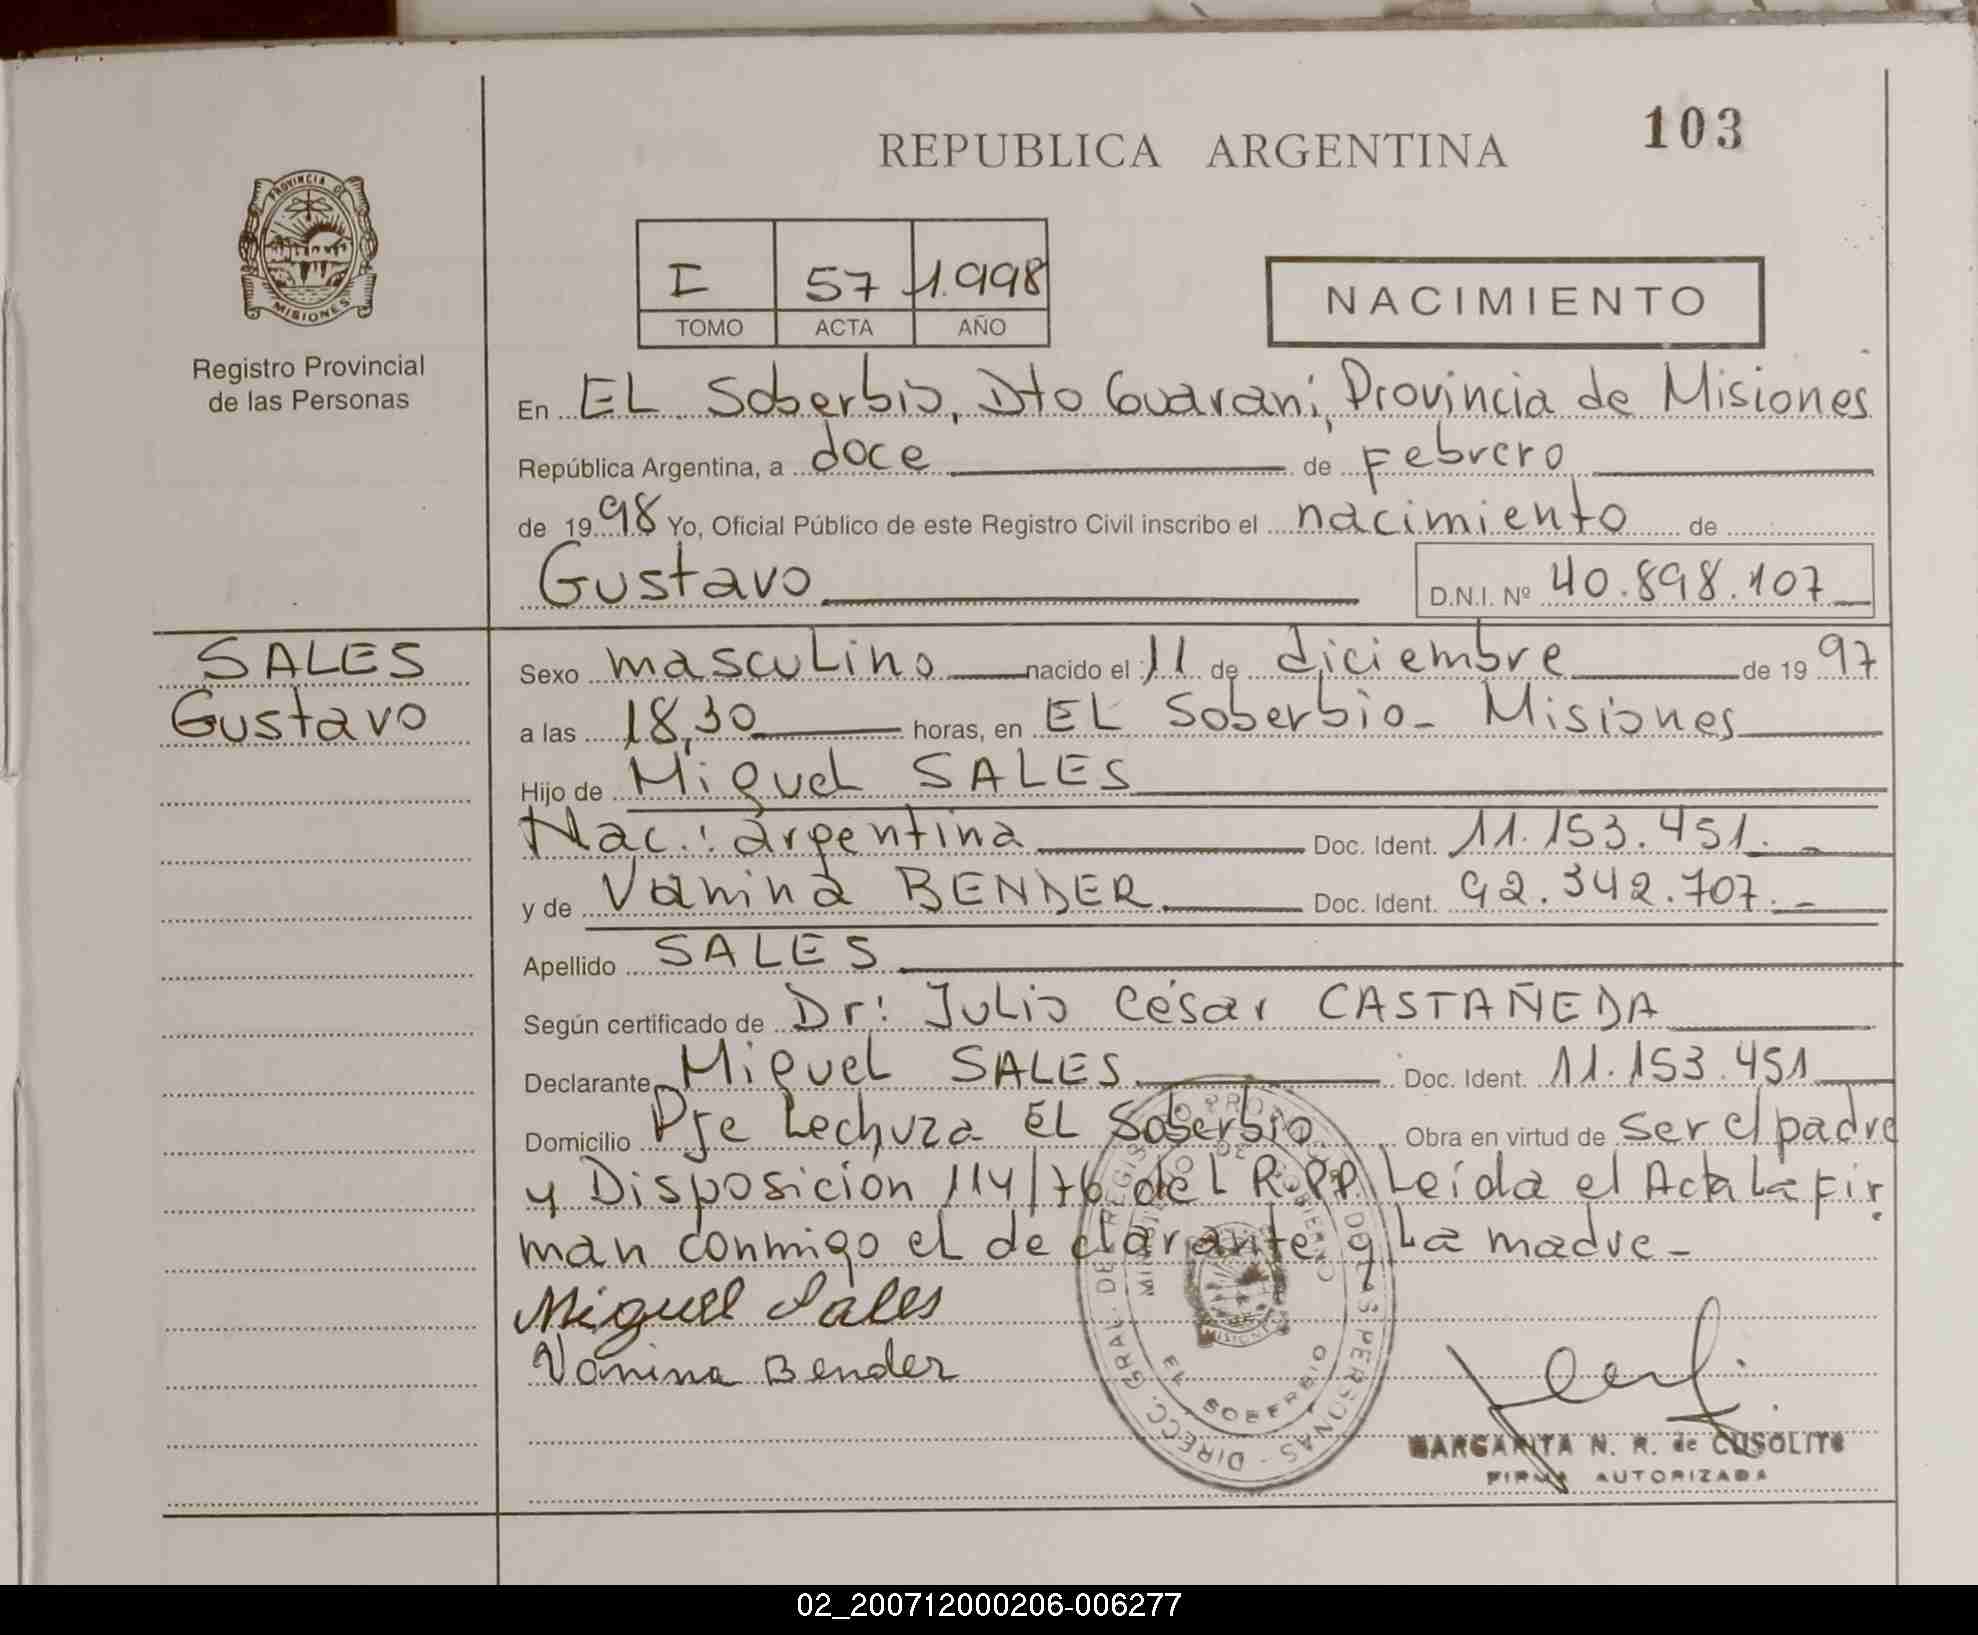 103
REPUBLICA ARGENTINA
PROVINCIA DE
MISIONES
Registro Provincial
de las Personas
I 57 1.998
TOMO ACTA AÑO
NACIMIENTO
En EL Soberbio, Dto Guaraní, Provincia de Misiones
República Argentina, a doce de Febrero
de 1998 Yo, Oficial Público de este Registro Civil inscribo el nacimiento de
Gustavo D.N.I. Nº 40.898.107
SALES
Gustavo
Sexo masculino nacido el 11 de diciembre de 1997
a las 18,30 horas, en EL Soberbio - Misiones
Hijo de Miguel SALES
Nac.: argentina Doc. Ident. 11.153.451.-
y de Vanina BENDER Doc. Ident. 92.342.707.-
Apellido SALES
Según certificado de Dr: Julio César CASTAÑEDA
Declarante Miguel SALES Doc. Ident. 11.153.451
Domicilio Pje Lechuza EL Soberbio Obra en virtud de ser el padre
y Disposición 114/76 del R.P.P. Leída el Acta La fir
man conmigo el declarante y La madre-
Miguel Sales
Vanina Bender
DIRECC. GRAL. DE REGISTRO PROV. DE LAS PERSONAS
MINISTERIO DE GOBIERNO
MISIONES
EL SOBERBIO
MARGARITA N. R. de CUSOLITO
FIRMA AUTORIZADA
02_200712000206-006277